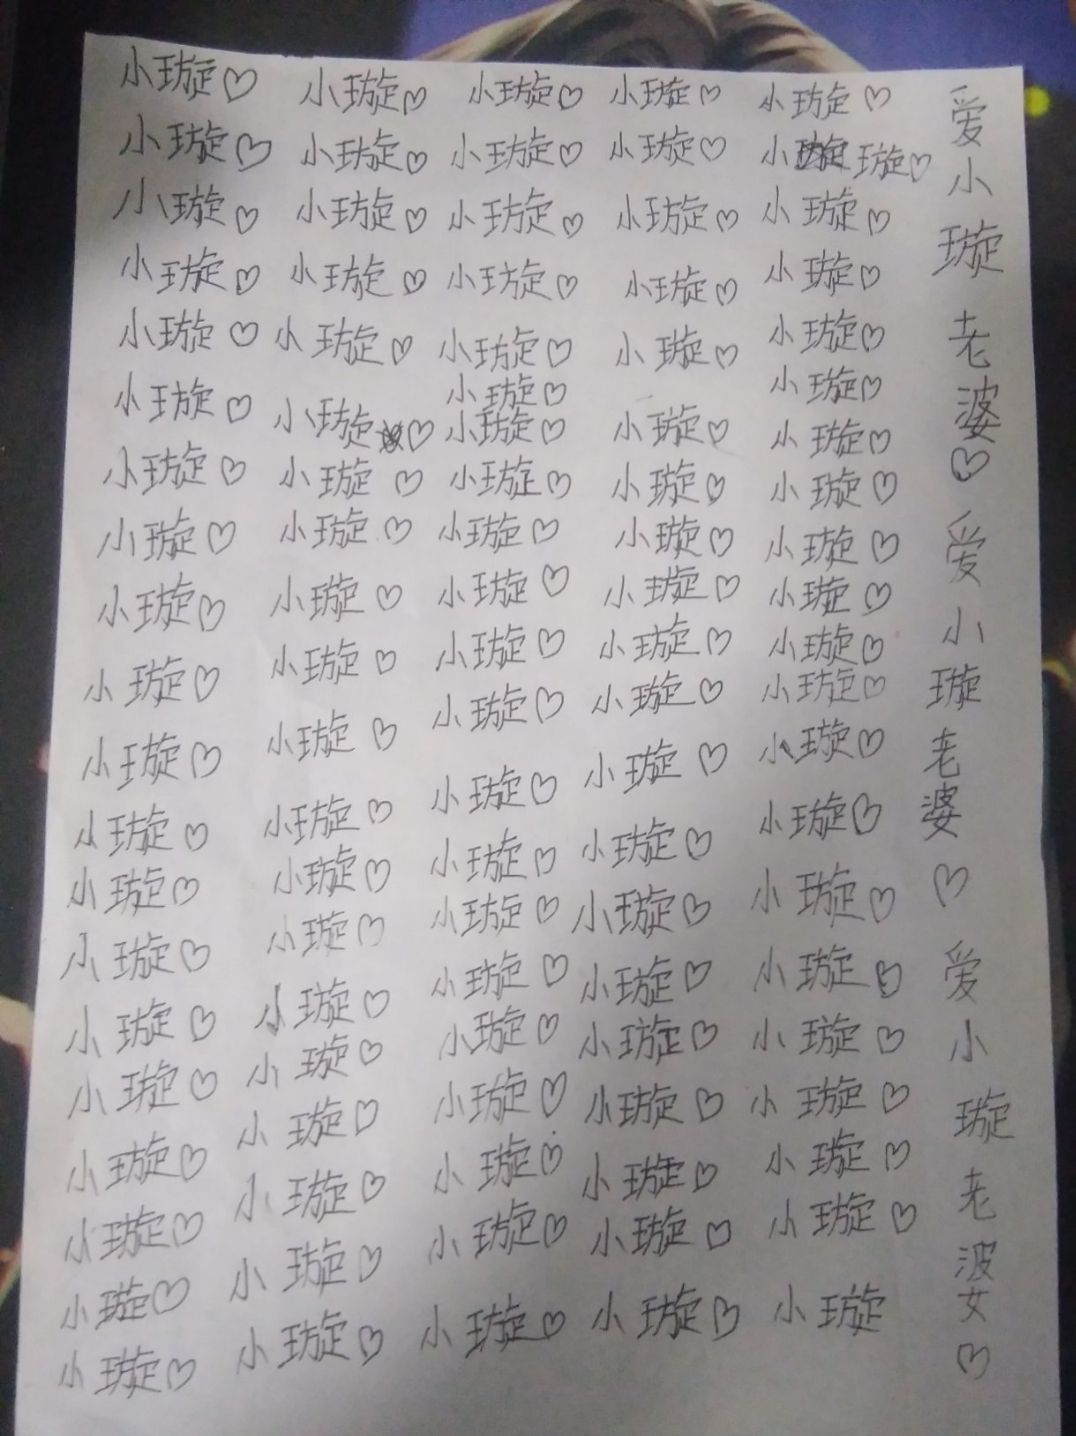 小璇♡ 小璇♡ 小璇♡ 小璇♡ 小璇♡
小璇♡ 小璇♡ 小璇♡ 小璇♡ 小璇♡
小璇♡ 小璇♡ 小璇♡ 小璇♡ 小璇♡
小璇♡ 小璇♡ 小璇♡ 小璇♡ 小璇♡
小璇♡ 小璇♡ 小璇♡ 小璇♡ 小璇♡
小璇♡ 小璇♡
小璇♡ 小璇♡ 小璇♡ 小璇♡ 小璇♡
小璇♡ 小璇♡ 小璇♡ 小璇♡ 小璇♡
小璇♡ 小璇♡ 小璇♡ 小璇♡ 小璇♡
小璇♡ 小璇♡ 小璇♡ 小璇♡ 小璇♡
小璇♡ 小璇♡ 小璇♡ 小璇♡ 小璇♡
小璇♡ 小璇♡ 小璇♡ 小璇♡ 小璇♡
小璇♡ 小璇♡ 小璇♡ 小璇♡ 小璇♡
小璇♡ 小璇♡ 小璇♡ 小璇♡ 小璇♡
小璇♡ 小璇♡ 小璇♡ 小璇♡ 小璇♡
小璇♡ 小璇♡ 小璇♡ 小璇♡ 小璇♡
小璇♡ 小璇♡ 小璇♡ 小璇♡ 小璇♡
小璇♡ 小璇♡ 小璇♡ 小璇♡ 小璇♡
小璇♡ 小璇♡ 小璇♡ 小璇♡ 小璇♡
小璇♡ 小璇♡ 小璇♡ 小璇♡ 小璇♡
小璇♡ 小璇♡ 小璇♡ 小璇♡ 小璇
爱小璇老婆♡爱小璇老婆♡爱小璇老婆♡